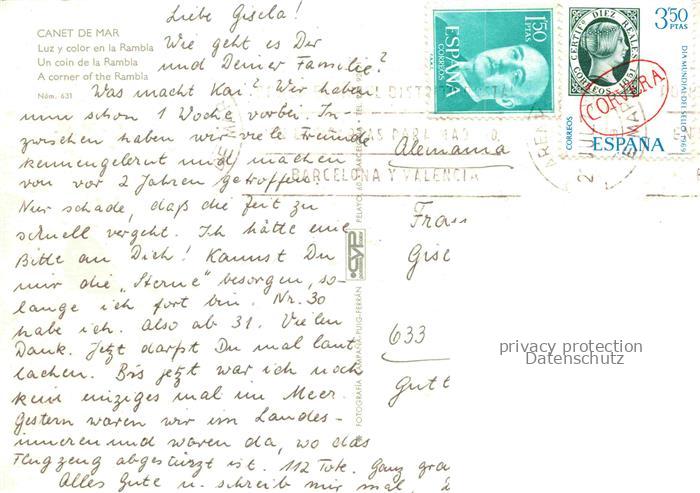 CANET DE MAR
Luz y color en la Rambla
Un coin de la Rambla
A corner of the Rambla
Núm. 631
Liebe Gisela!
Wie geht es Dir
und Deiner Familie?
Was macht Kai? Wir haben
nun schon 1 Woche vorbei. In-
zwischen haben wir viele Freunde
kennengelernt und machen
von vor 2 Jahren getroffen.
Nur schade, daß die Zeit zu
schnell vergeht. Ich hätte eine
Bitte an Dich! Kannst Du
mir die "Sterne" besorgen, so-
lange ich fort bin. Nr. 30
habe ich. Also ab 31. Vielen
Dank. Jetzt darfst Du mal laut
lachen. Bis jetzt war ich noch
kein einziges mal im Meer.
Gestern waren wir im Landes-
inneren und waren da, wo das
Flugzeug abgestürzt ist. 112 Tote. Ganz gra
Alles Gute u. schreib mir mal.
FOTOGRAFÍA CAMPAÑÁ-PUIG-FERRÁN
CYP
PELAYO, 60
BARCELONA
1'50
PTAS
ESPAÑA
CORREOS
3'50
PTAS
CERTIFº DIEZ REALES
CORREOS 1851
DIA MUNDIAL DEL SELLO 1969
CORREOS
ESPAÑA
CORVERA
DISTRITO POSTAL
PARA MADRID,
BARCELONA Y VALENCIA
Alemania
Frau
Gise
633
Gutt
privacy protection
Datenschutz